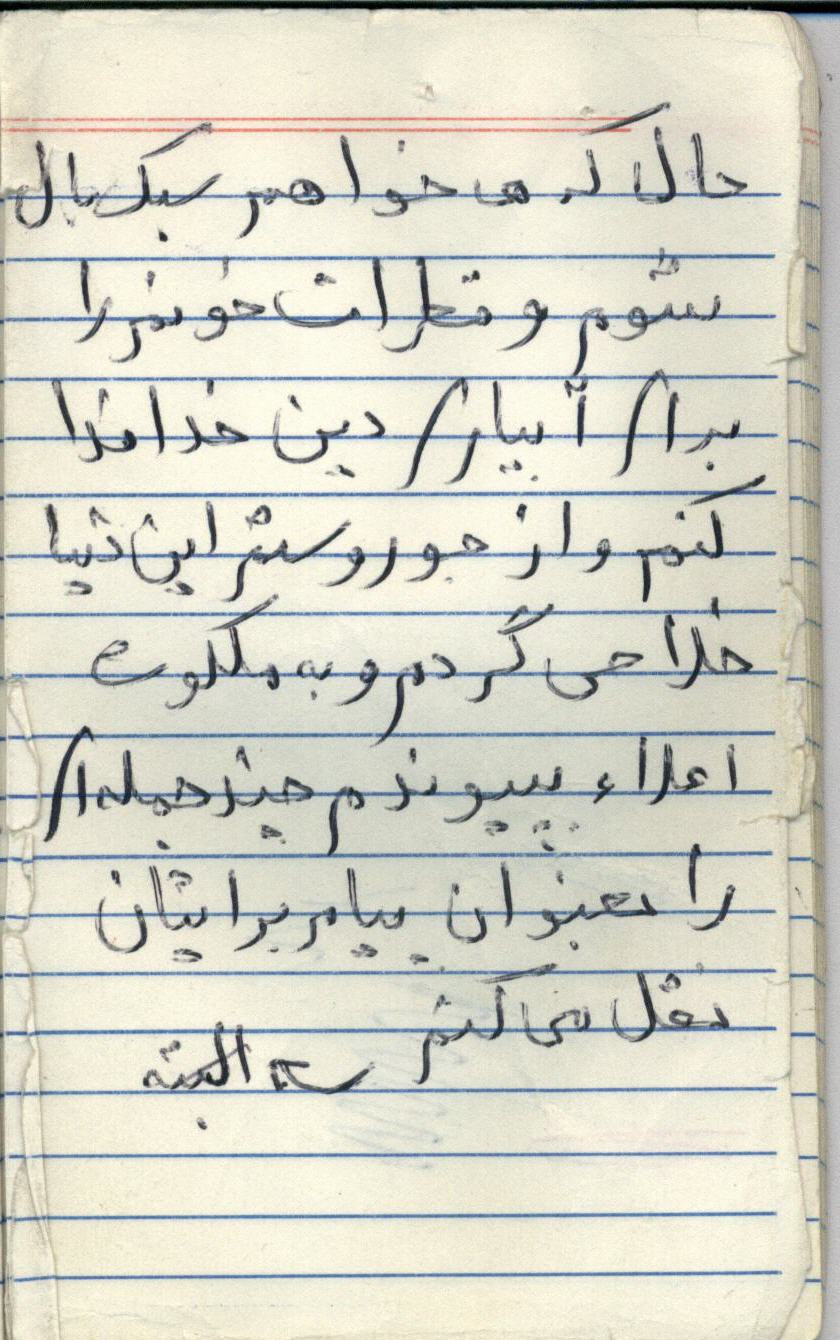 حال که می خواهم سبک بال
شوم و قطرات خونم را
برای آبیاری دین خدا فدا
کنم و از جور و ستم این دنیا
خلاصی گردم و به ملکوت
اعلاء بپیوندم چند جمله ای
را بعنوان پیام برایتان
نقل می کنم البته